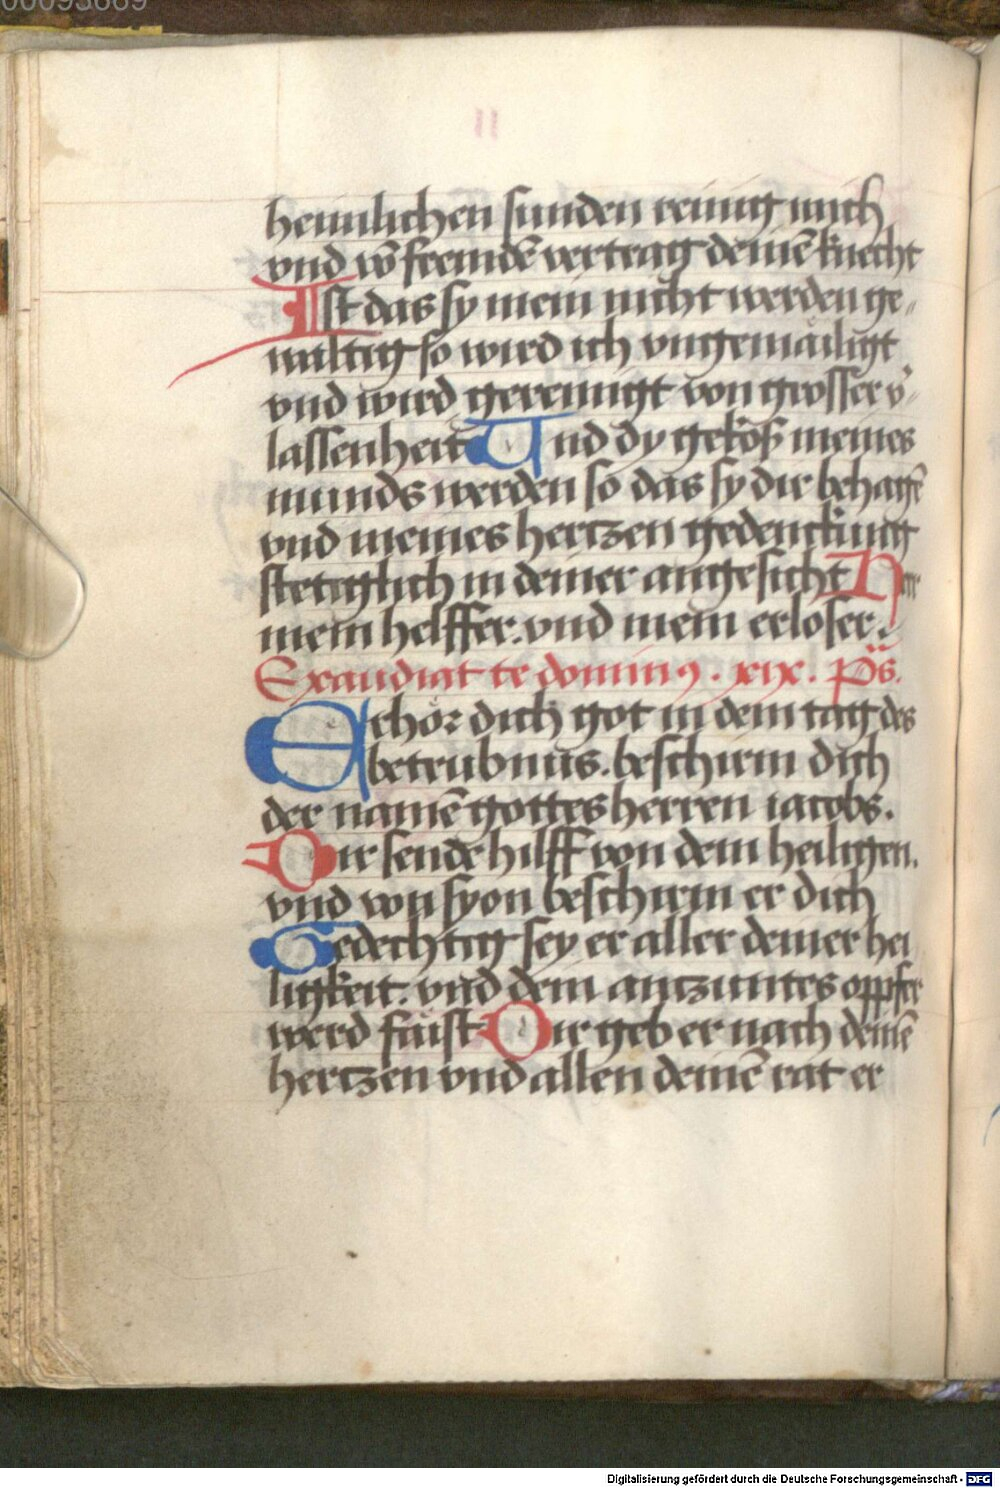 heimlichen sunden reinig mich
vnd võ fremdẽ vertrag deinẽ knecht
Ist das sy mein nicht werden ge⸗
waltig so wird ich vngemäiligt
vnd wird gereinigt von grosser v̾⸗
lassenheit Und dy gekös meines
munds werden so das sy dir behagẽ
vnd meines hertzen gedenckung
stetiglich in deiner angesicht Herr
mein helffer. vnd mein erloser.
Exaudiat te dominꝰ. xix. Ps.
Erhör dich got in dem tag des
betrubnus. beschirm dich
der namẽ gottes herren iacobs.
Dir sende hilff von dem heiligen.
vnd von syon beschirm er dich
Gedechtig sey er aller deiner hei
ligkeit. vnd dein antzuntes oppfer
werd fäist Dir geb er nach deinẽ
hertzen vnd allen deinẽ rat er
Digitalisierung gefördert durch die Deutsche Forschungsgemeinschaft - DFG